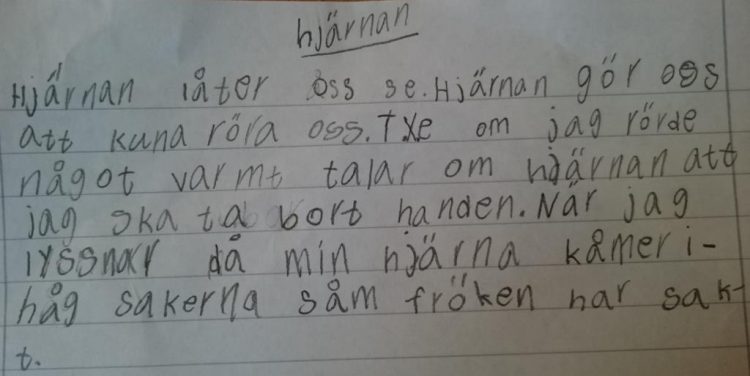 hjärnan
Hjärnan låter oss se. Hjärnan gör oss
att kuna röra oss. Txe om jag rörde
något varmt talar om hjärnan att
jag ska ta bort handen. När jag
lyssnar då min hjärna kåmer i-
håg sakerna såm fröken har sak-
t.